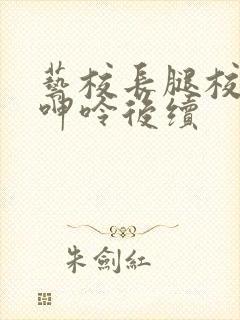 藝校長腿校
呻吟後續
朱劍紅